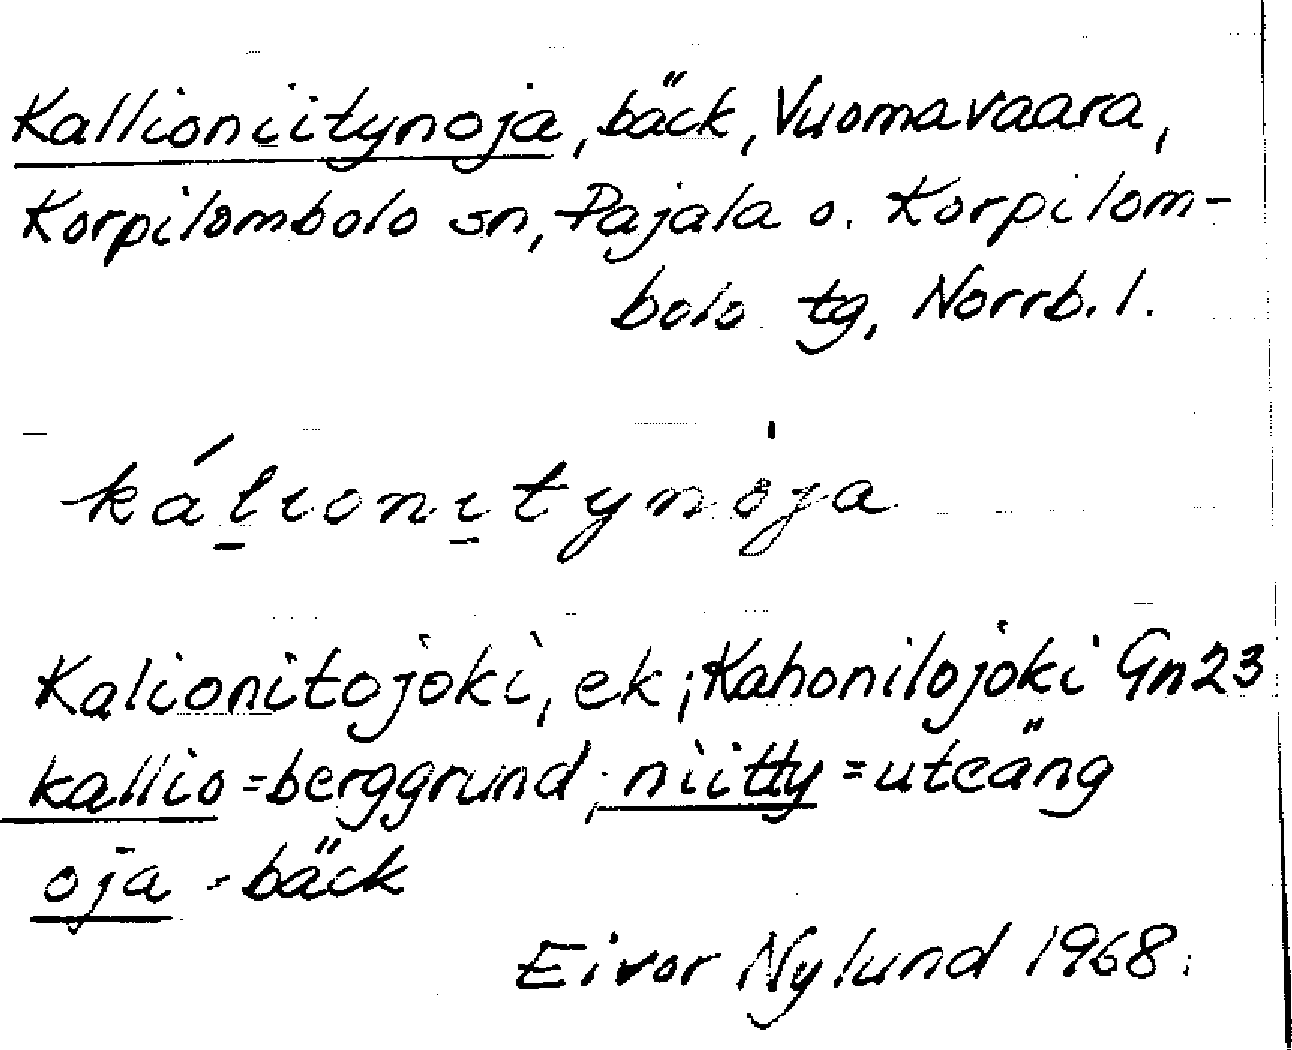 Kallioniitynoja, bäck, Vuomavaara,
Korpilombolo sn, Pajala o. Korpilom-
bolo tg, Norrb. l.
kál̲ıonı̲tynòja
Kalionitojoki, ek; Kahonilojoki Gn23
kallio=berggrund; niitty=uteäng
oja=bäck
Eivor Nylund 1968.